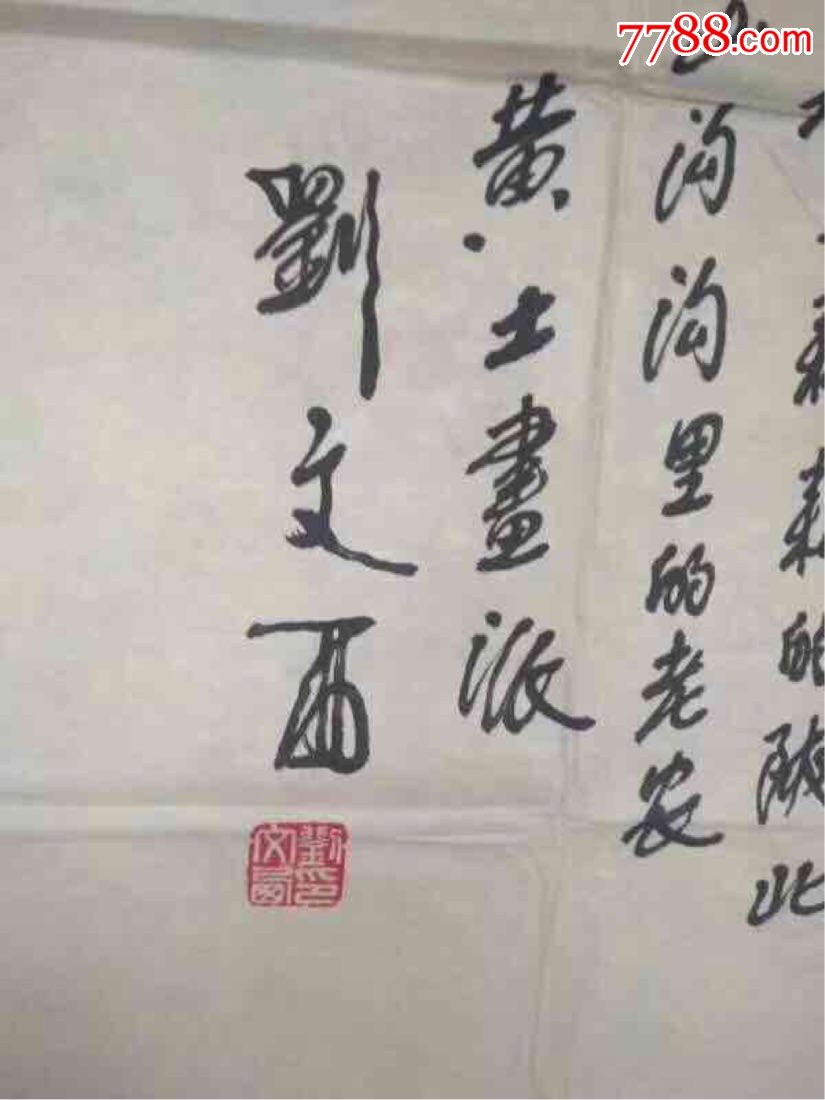 7788.com
耕耘的陕北
沟沟里的老农
黄土畫派
劉文西
劉文西印